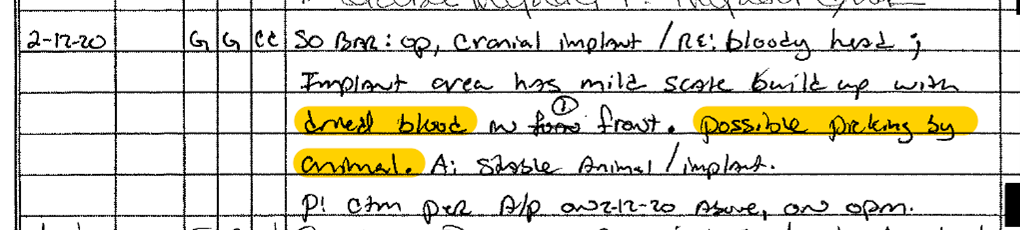 2-12-20 G G CC SO BAR: op, cranial implant / RE: bloody head;
Implant area has mild scale build up with
dried blood in front. possible picking by
animal. A: Stable Animal / implant.
P: ctm per A/p on 2-12-20 Above, on opm.